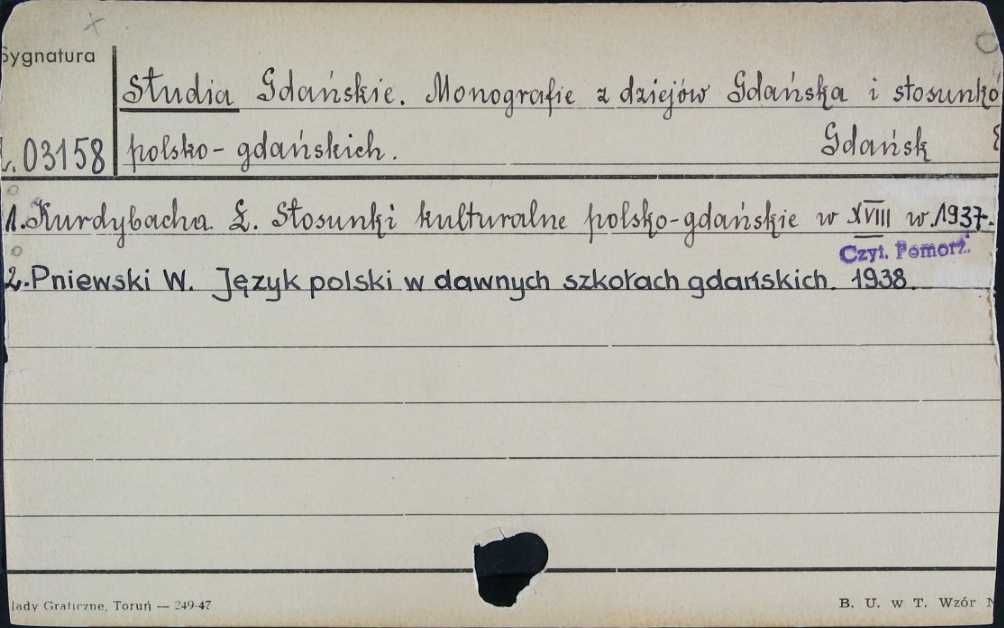 Sygnatura
Studia Gdańskie. Monografie z dziejów Gdańska i stosunkó
03158 polsko-gdańskich. Gdańsk
1. Kurdybacha Ł. Stosunki kulturalne polsko-gdańskie w XVIII w. 1937.
Czyt. Pomorz.
2. Pniewski W. Język polski w dawnych szkołach gdańskich. 1938.
łady Graficzne, Toruń — 249-47
B. U. w T. Wzór